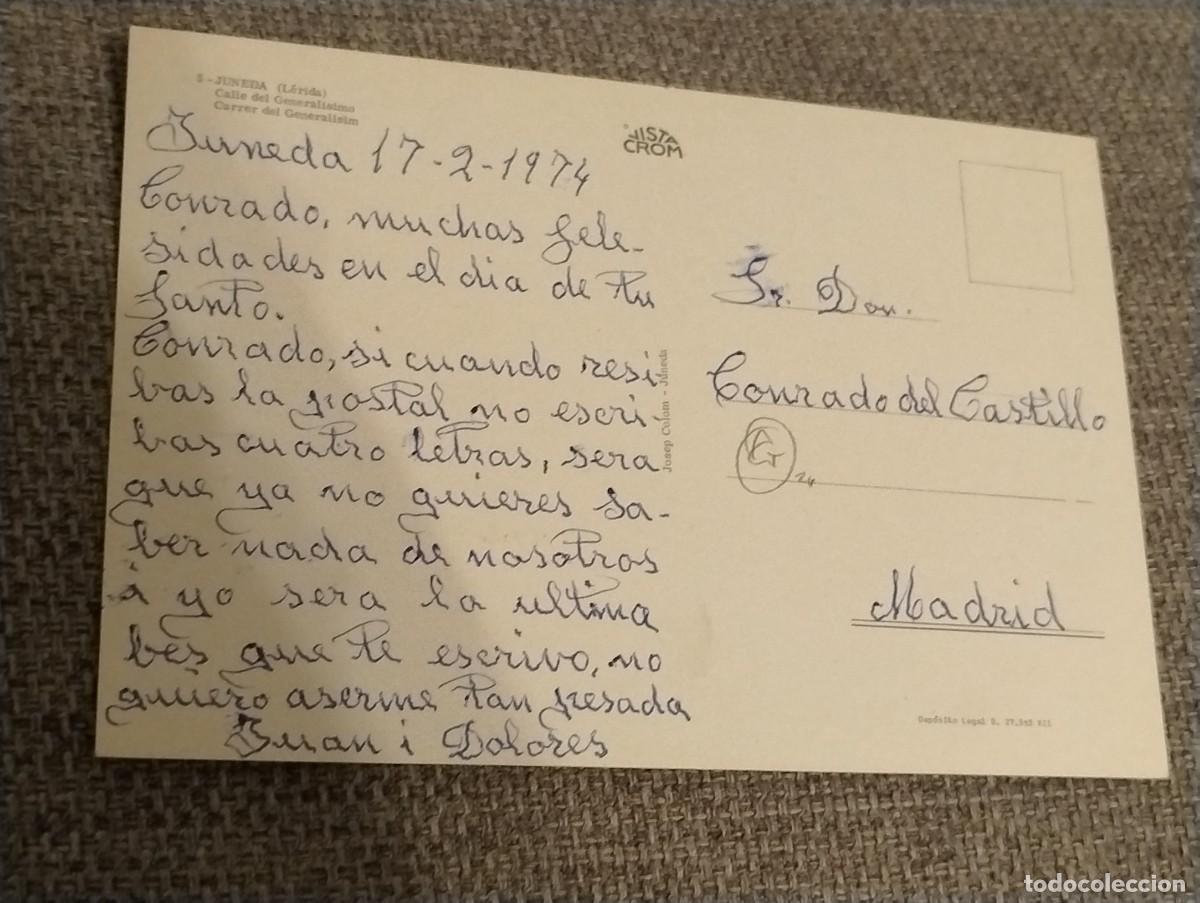 5 - JUNEDA (Lérida)
Calle del Generalísimo
Carrer del Generalísim
VISTA
CROM
Juneda 17-2-1974
Conrado, muchas fele-
sidades en el dia de tu
Santo.
Conrado, si cuando resi-
bas la postal no escri-
bas cuatro letras, sera
que ya no quieres sa-
ber nada de nosotros
i yo sera la ultima
bes que te escrivo, no
quiero aserme tan pesada
Juan i Dolores
Josep Colom - Juneda
Sr. Don.
Conrado del Castillo
24
Madrid
Depósito Legal B. 27.
todocoleccion